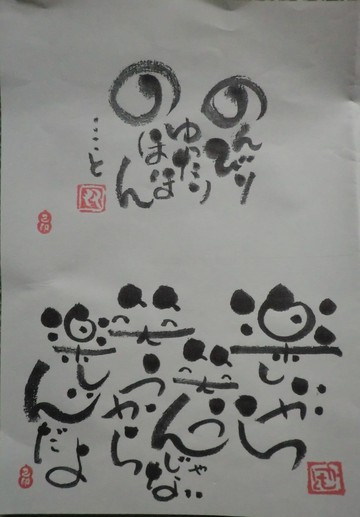 のんびり
ゆったり
のほほん
…と
楽しいから
笑うんじゃない
笑うから
楽しいんだよ